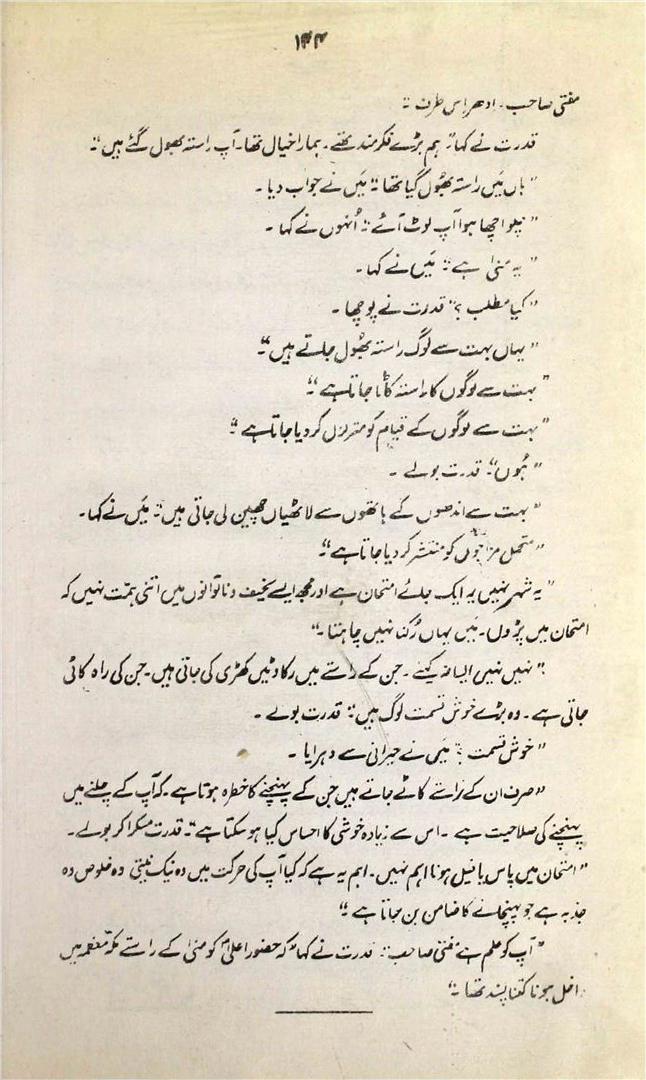 ۱۴۴
مفتی صاحب۔ ادھر اس طرف :"
قدرت نے کہا" ہم بڑے فکر مند تھے۔ ہمارا خیال تھا۔ آپ راستہ بھول گئے ہیں :"
"ہاں میَں راستہ بھُول گیا تھا :" میَں نے جواب دیا۔
"چلو اچھا ہوا آپ لوٹ آئے :" اُنہوں نے کہا۔
"یہ منیٰ ہے :" میَں نے کہا۔
"کیا مطلب ؟" قدرت نے پوچھا۔
"یہاں بہت سے لوگ راستہ بھُول جاتے ہیں"۔
"بہت سے لوگوں کا راستہ کاٹا جاتا ہے"۔
"بہت سے لوگوں کے قیام کو متزلزل کر دیا جاتا ہے"۔
"ہُوں" قدرت بولے۔
"بہت سے اندھوں کے ہاتھوں سے لاٹھیاں چھین لی جاتی ہیں" میَں نے کہا۔
"متحمل مزاجوں کو منتشر کر دیا جاتا ہے"۔
"یہ شہر نہیں یہ ایک جائے امتحان ہے اور مجھ ایسے نحیف و ناتوانوں میں اتنی ہمت نہیں کہ
امتحان میں پڑوں۔ میَں یہاں رُکنا نہیں چاہتا۔"
"نہیں نہیں ایسا نہ کہیئے۔ جن کے راستے میں رکاوٹیں کھڑی کی جاتی ہیں۔ جن کی راہ کاٹی
جاتی ہے۔ وہ بڑے خوش قسمت لوگ ہیں" قدرت بولے۔
"خوش قسمت ؟" میَں نے حیرانی سے دہرایا۔
"صرف ان کے راستے کاٹے جاتے ہیں جن کے پہنچنے کا خطرہ ہوتا ہے۔ کہ آپ کے چلنے میں
پہنچنے کی صلاحیت ہے۔ اس سے زیادہ خوشی کا احساس کیا ہو سکتا ہے"۔ قدرت مسکرا کر بولے۔
"امتحان میں پاس یا فیل ہونا اہم نہیں۔ اہم یہ ہے کہ کیا آپ کی حرکت میں وہ نیک نیتی وہ خلوص وہ
جذبہ ہے جو پہنچانے کا ضامن بن جاتا ہے۔"
"آپ کو علم ہے مفتی صاحب :" قدرت نے کہا" کہ حضور اعلیٰؐ کو منیٰ کے راستے مکہ معظمہ میں
داخل ہونا کتنا پسند تھا۔"